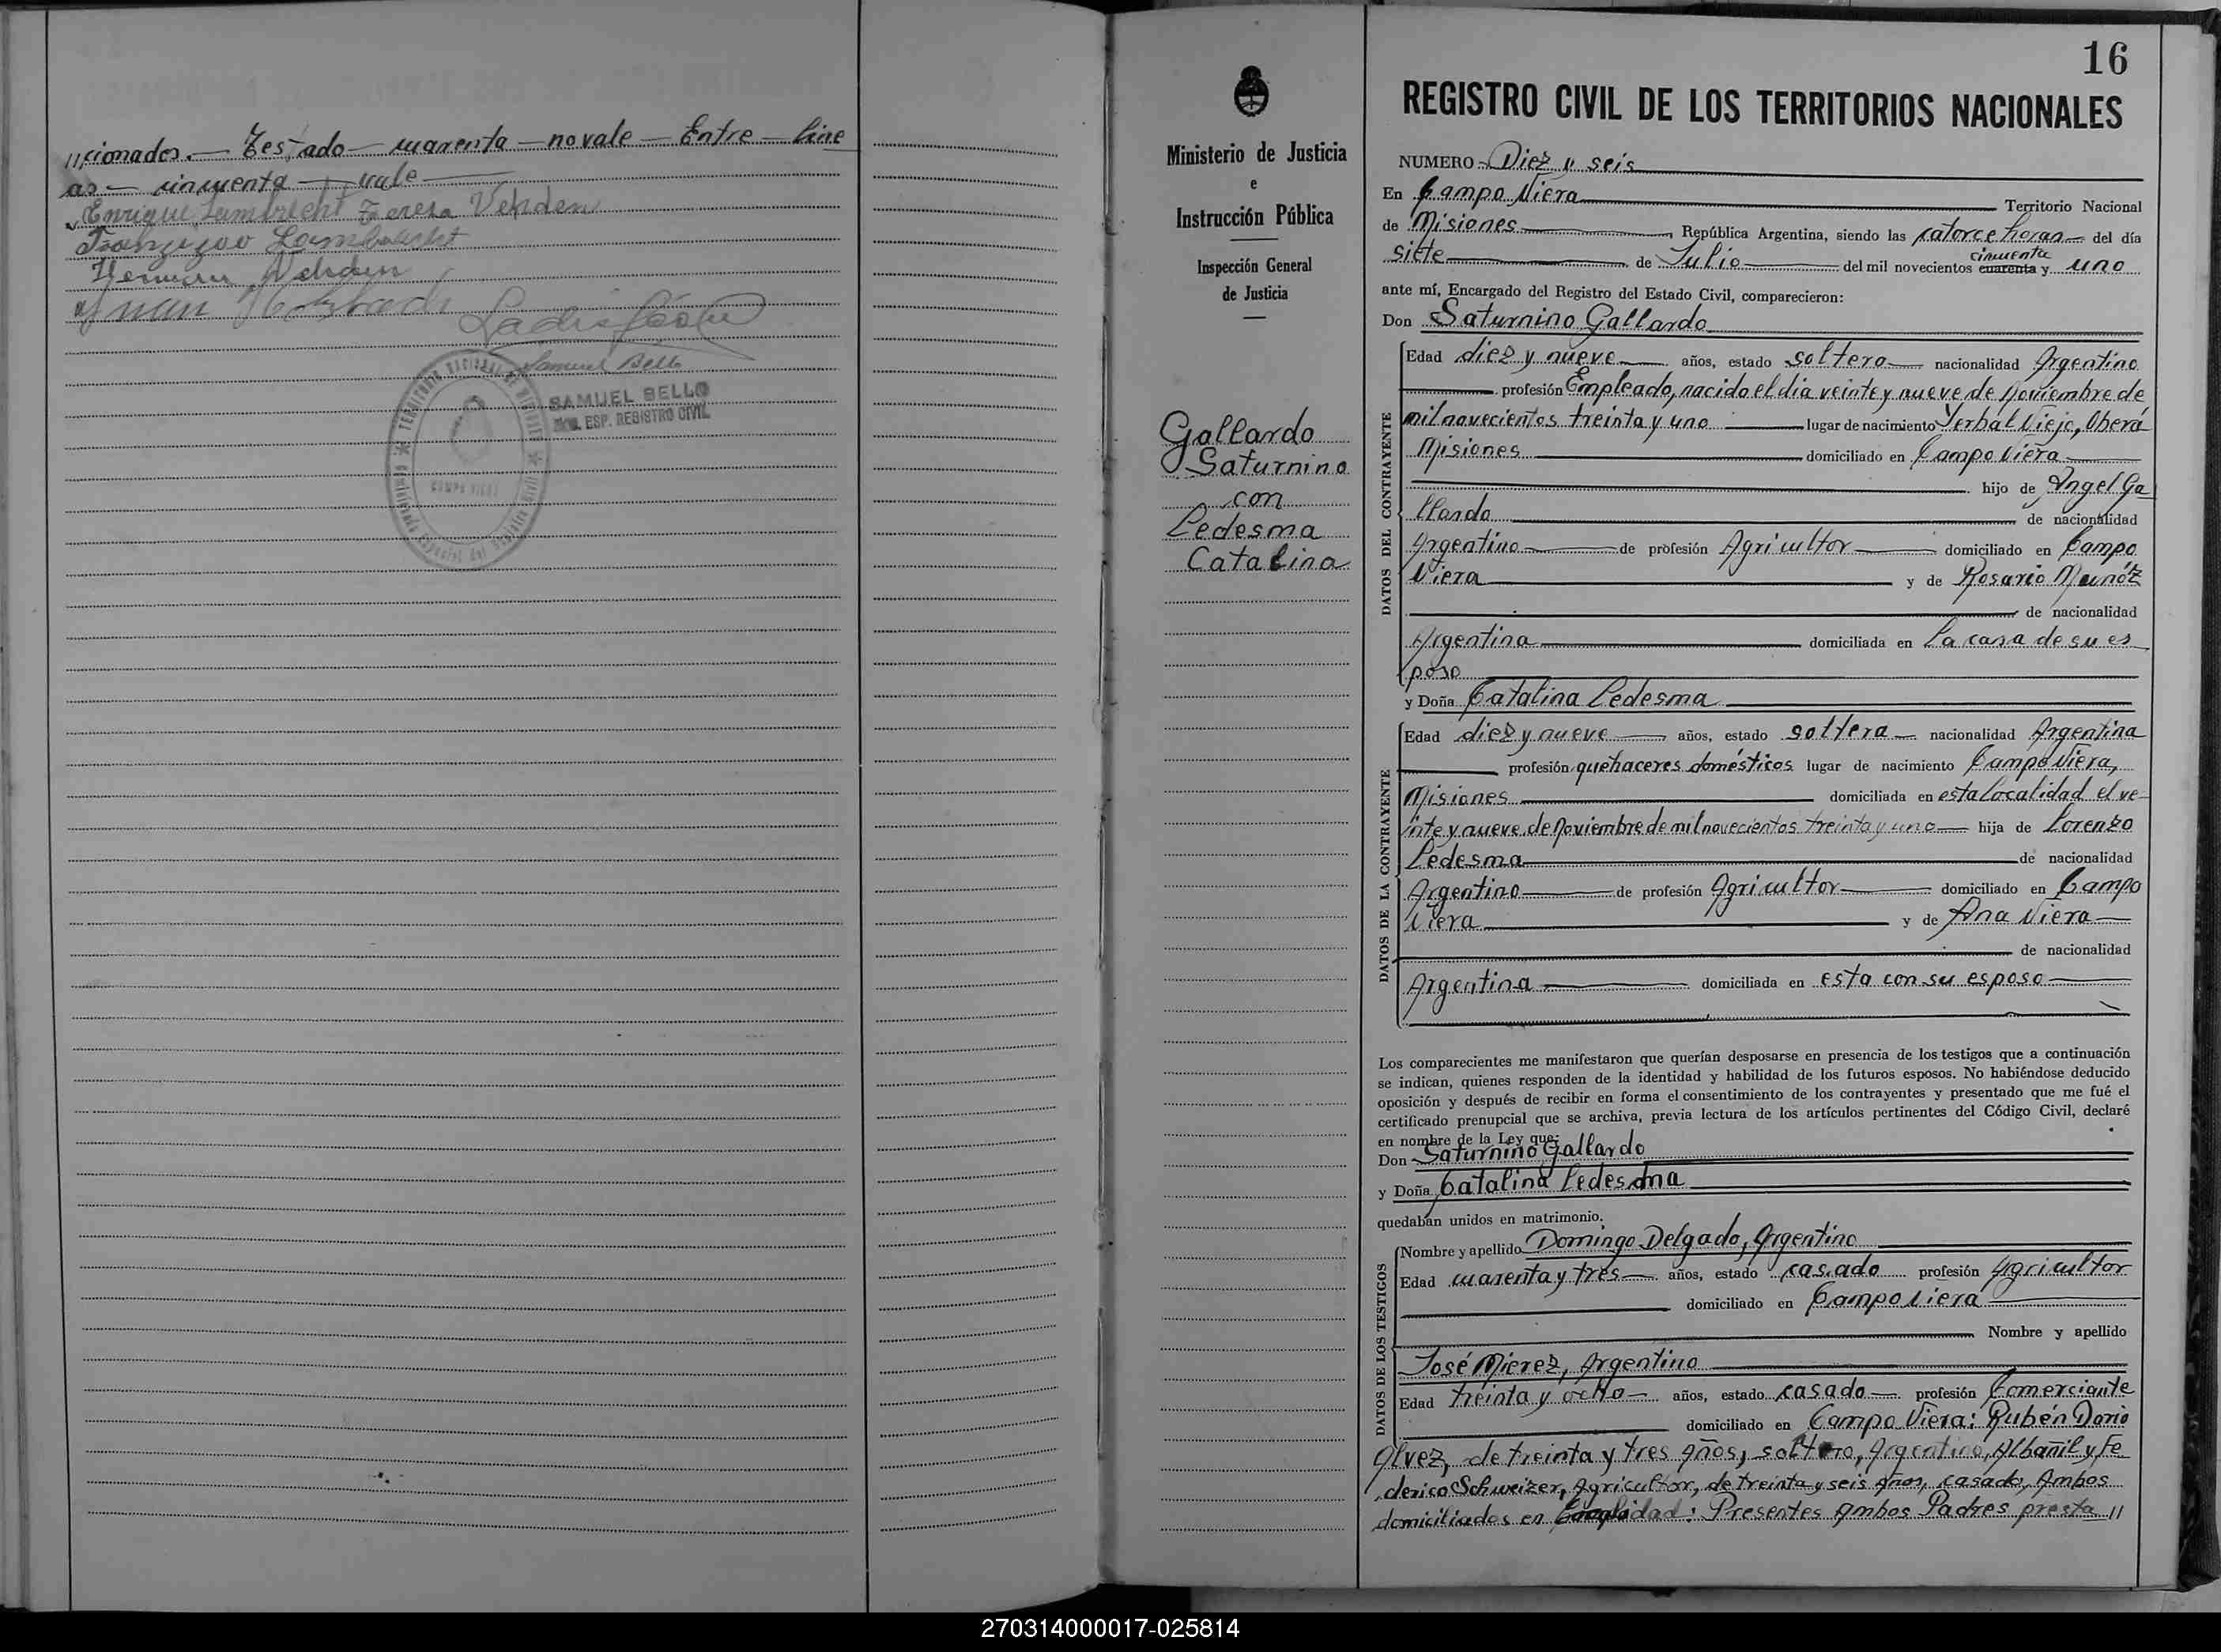 //cionados.— Testado — cuarenta — no vale — Entre — line
as — cincuenta — vale —
Enrique Lambrecht Teresa Vehden
Lambrecht
Hermann Vehden
Juan
Samuel Bello
SAMUEL BELLO
ENC. ESP. REGISTRO CIVIL
16
REGISTRO CIVIL DE LOS TERRITORIOS NACIONALES
Ministerio de Justicia
e
Instrucción Pública
Inspección General
de Justicia
Gallardo
Saturnino
con
Ledesma
Catalina
NUMERO Diez y seis
En Campo Viera Territorio Nacional
de Misiones, República Argentina, siendo las catorce horas del día
siete de Julio del mil novecientos cuarenta cincuenta y uno
ante mí, Encargado del Registro del Estado Civil, comparecieron:
Don Saturnino Gallardo
DATOS DEL CONTRAYENTE
Edad diez y nueve años, estado soltero nacionalidad Argentino
profesión Empleado, nacido el día veinte y nueve de Noviembre de
mil novecientos treinta y uno lugar de nacimiento Yerbal Viejo, Oberá
Misiones domiciliado en Campo Viera
hijo de Angel Ga
llardo de nacionalidad
Argentino de profesión Agricultor domiciliado en Campo
Viera y de Rosario Munótz
de nacionalidad
Argentina domiciliada en La casa de su es
poso
y Doña Catalina Ledesma
DATOS DE LA CONTRAYENTE
Edad diez y nueve años, estado soltera nacionalidad Argentina
profesión quehaceres domésticos lugar de nacimiento Campo Viera,
Misiones domiciliada en esta localidad el ve-
inte y nueve de Noviembre de mil novecientos treinta y uno hija de Lorenzo
Ledesma de nacionalidad
Argentino de profesión Agricultor domiciliado en Campo
Viera y de Ana Viera
de nacionalidad
Argentina domiciliada en esta con su esposo
Los comparecientes me manifestaron que querían desposarse en presencia de los testigos que a continuación
se indican, quienes responden de la identidad y habilidad de los futuros esposos. No habiéndose deducido
oposición y después de recibir en forma el consentimiento de los contrayentes y presentado que me fué el
certificado prenupcial que se archiva, previa lectura de los artículos pertinentes del Código Civil, declaré
en nombre de la Ley que:
Don Saturnino Gallardo
y Doña Catalina Ledesma
quedaban unidos en matrimonio.
DATOS DE LOS TESTIGOS
Nombre y apellido Domingo Delgado, Argentino
Edad cuarenta y tres años, estado casado profesión Agricultor
domiciliado en Campo Viera
Nombre y apellido
José Mierez, Argentino
Edad treinta y ocho años, estado casado profesión Comerciante
domiciliado en Campo Viera: Rubén Dario
Alvez, de treinta y tres años, soltero, Argentino, Albañil y Fe
derico Schweizer, Agricultor, de treinta y seis años, casado, Ambos
domiciliados en localidad: Presentes Ambos Padres presta //
270314000017-025814